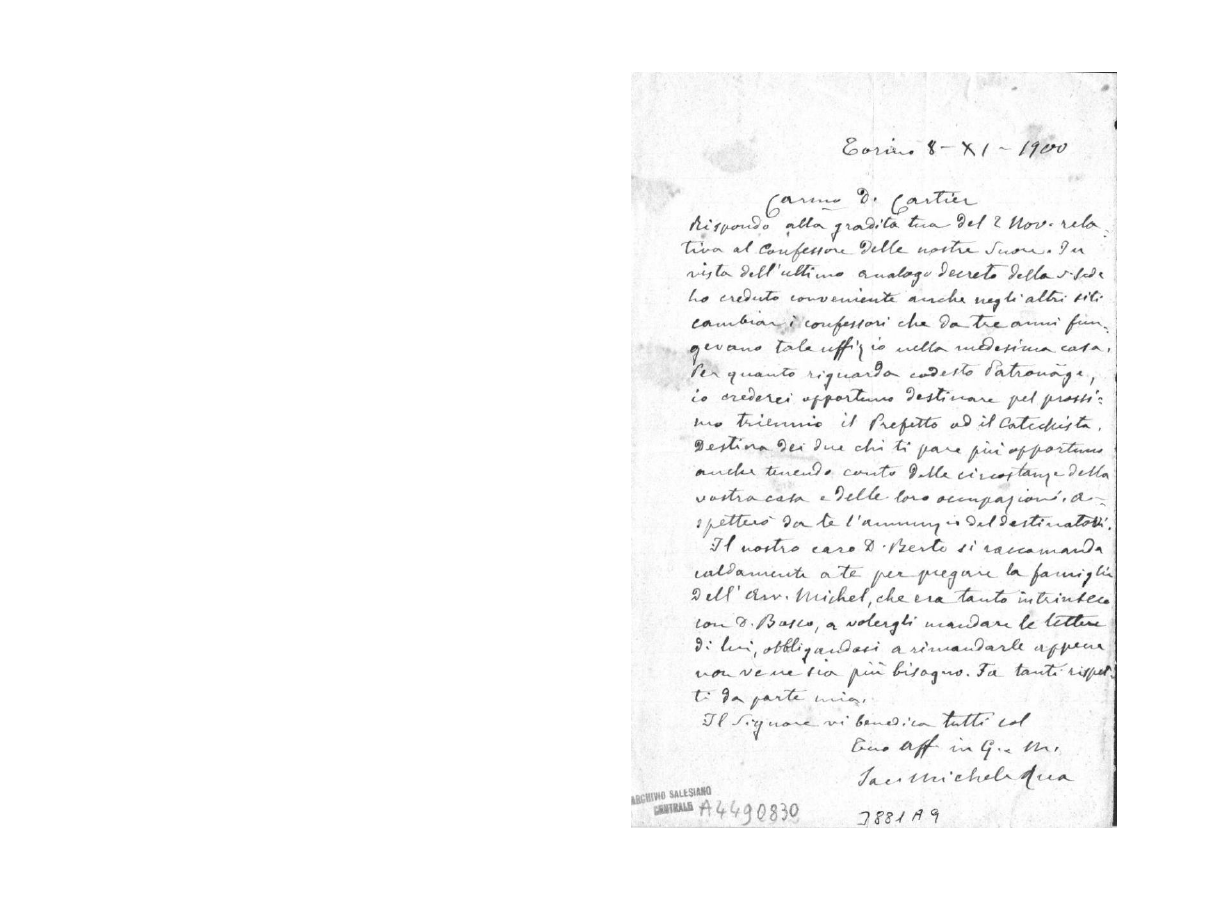 Torino 8 - XI - 1900
Carmo D. Cartier
Rispondo alla gradita tua del 2 Nov. rela-
tiva al Confessore delle nostre Suore. In
vista dell'ultimo analogo decreto della S. Sede
ho creduto conveniente anche negli altri siti
cambiar i confessori che da tre anni fun-
gevano tale uffizio nella medesima casa.
Per quanto riguarda codesto Patronage,
io crederei opportuno destinare pel prossi-
mo triennio il Prefetto od il Catechista.
Destina dei due chi ti pare più opportuno
anche tenendo conto delle circostanze della
vostra casa e delle loro occupazioni. A-
spetterò da te l'annunzio del destinatovi.
Il nostro caro D. Berto si raccomanda
caldamente a te per pregare la famiglia
dell' Avv. Michel, che era tanto intrinseco
con D. Bosco, a volergli mandare le lettere
di lui, obbligandosi a rimandarle appena
non ve ne sia più bisogno. Fa tanti rispet-
ti da parte mia.
Il Signore vi benedica tutti col
Tuo aff in G. e M.
Sac. Michele Rua
ARCHIVIO SALESIANO
CENTRALE A4490830
3881 A 9